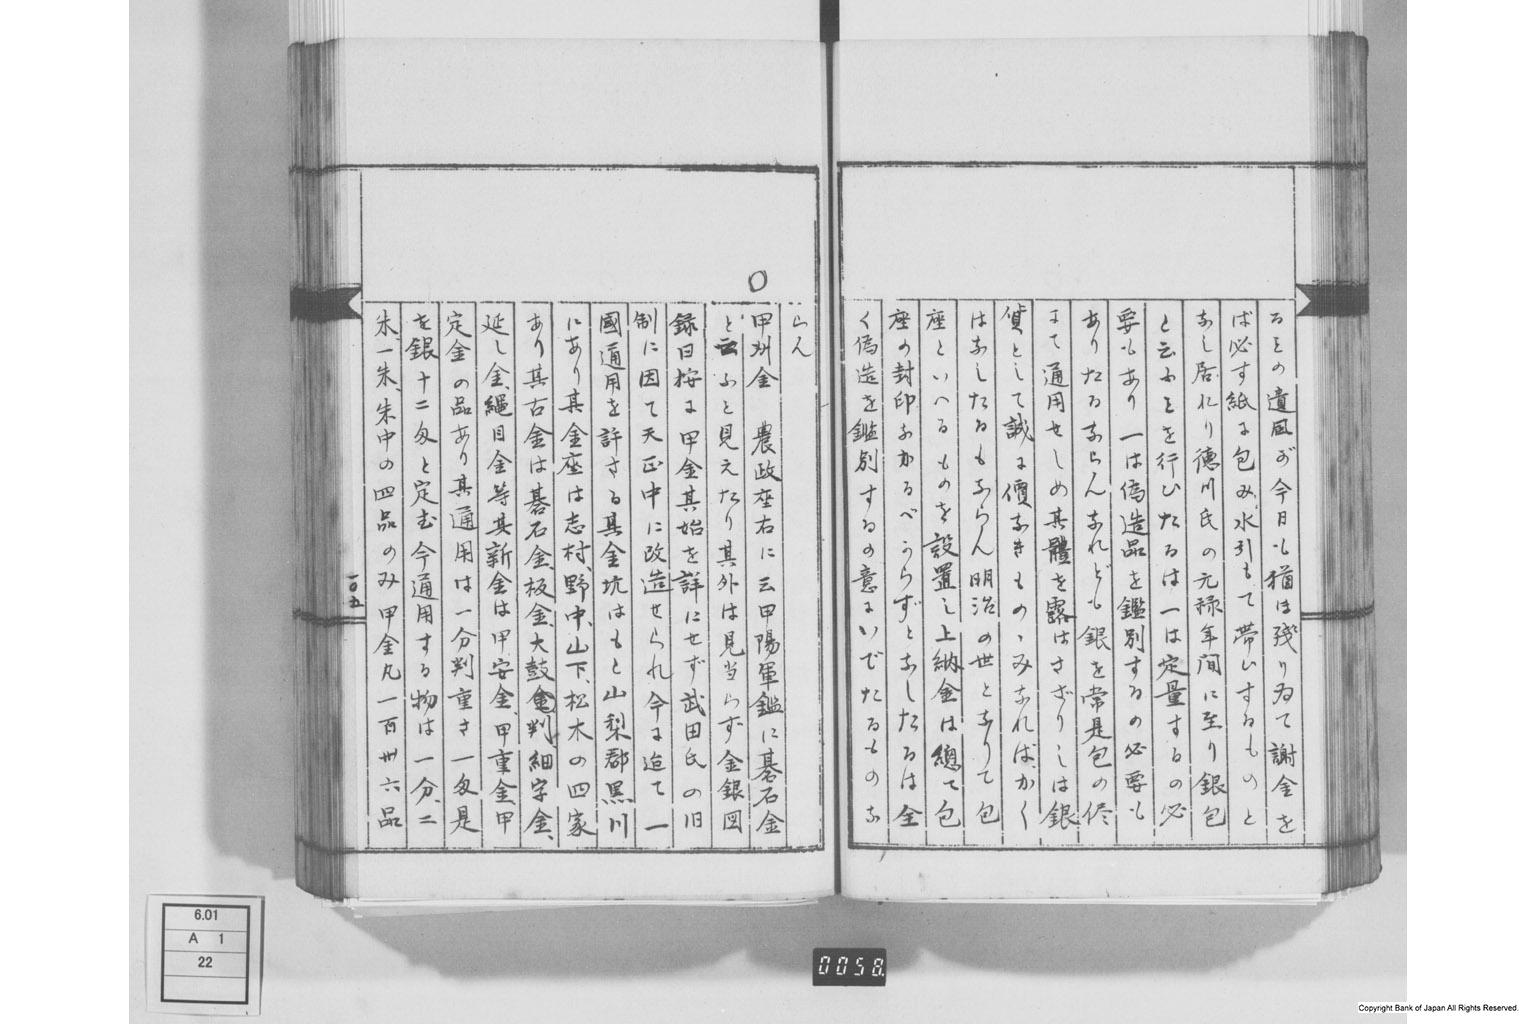 るその遺風が今日も猶ほ残り为て謝金を
ば必す紙に包み、水引もて帯ひするものと
なし居れり徳川氏の元禄年间に至り銀包
と云ふことを行ひたるは一は定量するの必
要もあり一は偽造品を鑑別するの必要も
ありたるならんなれども銀を常是包の侭
にて通用せしめ其體を露はさざりしは銀
貨として誠に價なきものゝみなればかく
はなしたるもならん明治の世となりて包
座といへるものを設置し上納金は總て包
座の封印なかるべからずとなしたるは全
く偽造を鑑別するの意にいでたるものな
らん
○
甲州金 農政座右に云甲陽軍鑑に碁石金
と云ふと見えたり其外は見当らず金銀図
録曰按に甲金其始を詳にせず武田氏の旧
制に因て天正中に改造せられ今に迨て一
國通用を許さる其金坑はもと山梨郡黒川
にあり其金座は志村、野中、山下、松木の四家
あり其古金は碁石金、板金、大鼓金判、細字金、
延し金、繩目金等其新金は甲安金、甲重金、甲
定金の品あり其通用は一分判重さ一匁是
を銀十二匁と定む今通用する物は一分、二
朱、一朱、朱中の四品のみ甲金凡一百卅六品
一〇五
6.01
A 1
22
0058
Copyright Bank of Japan All Rights Reserved.